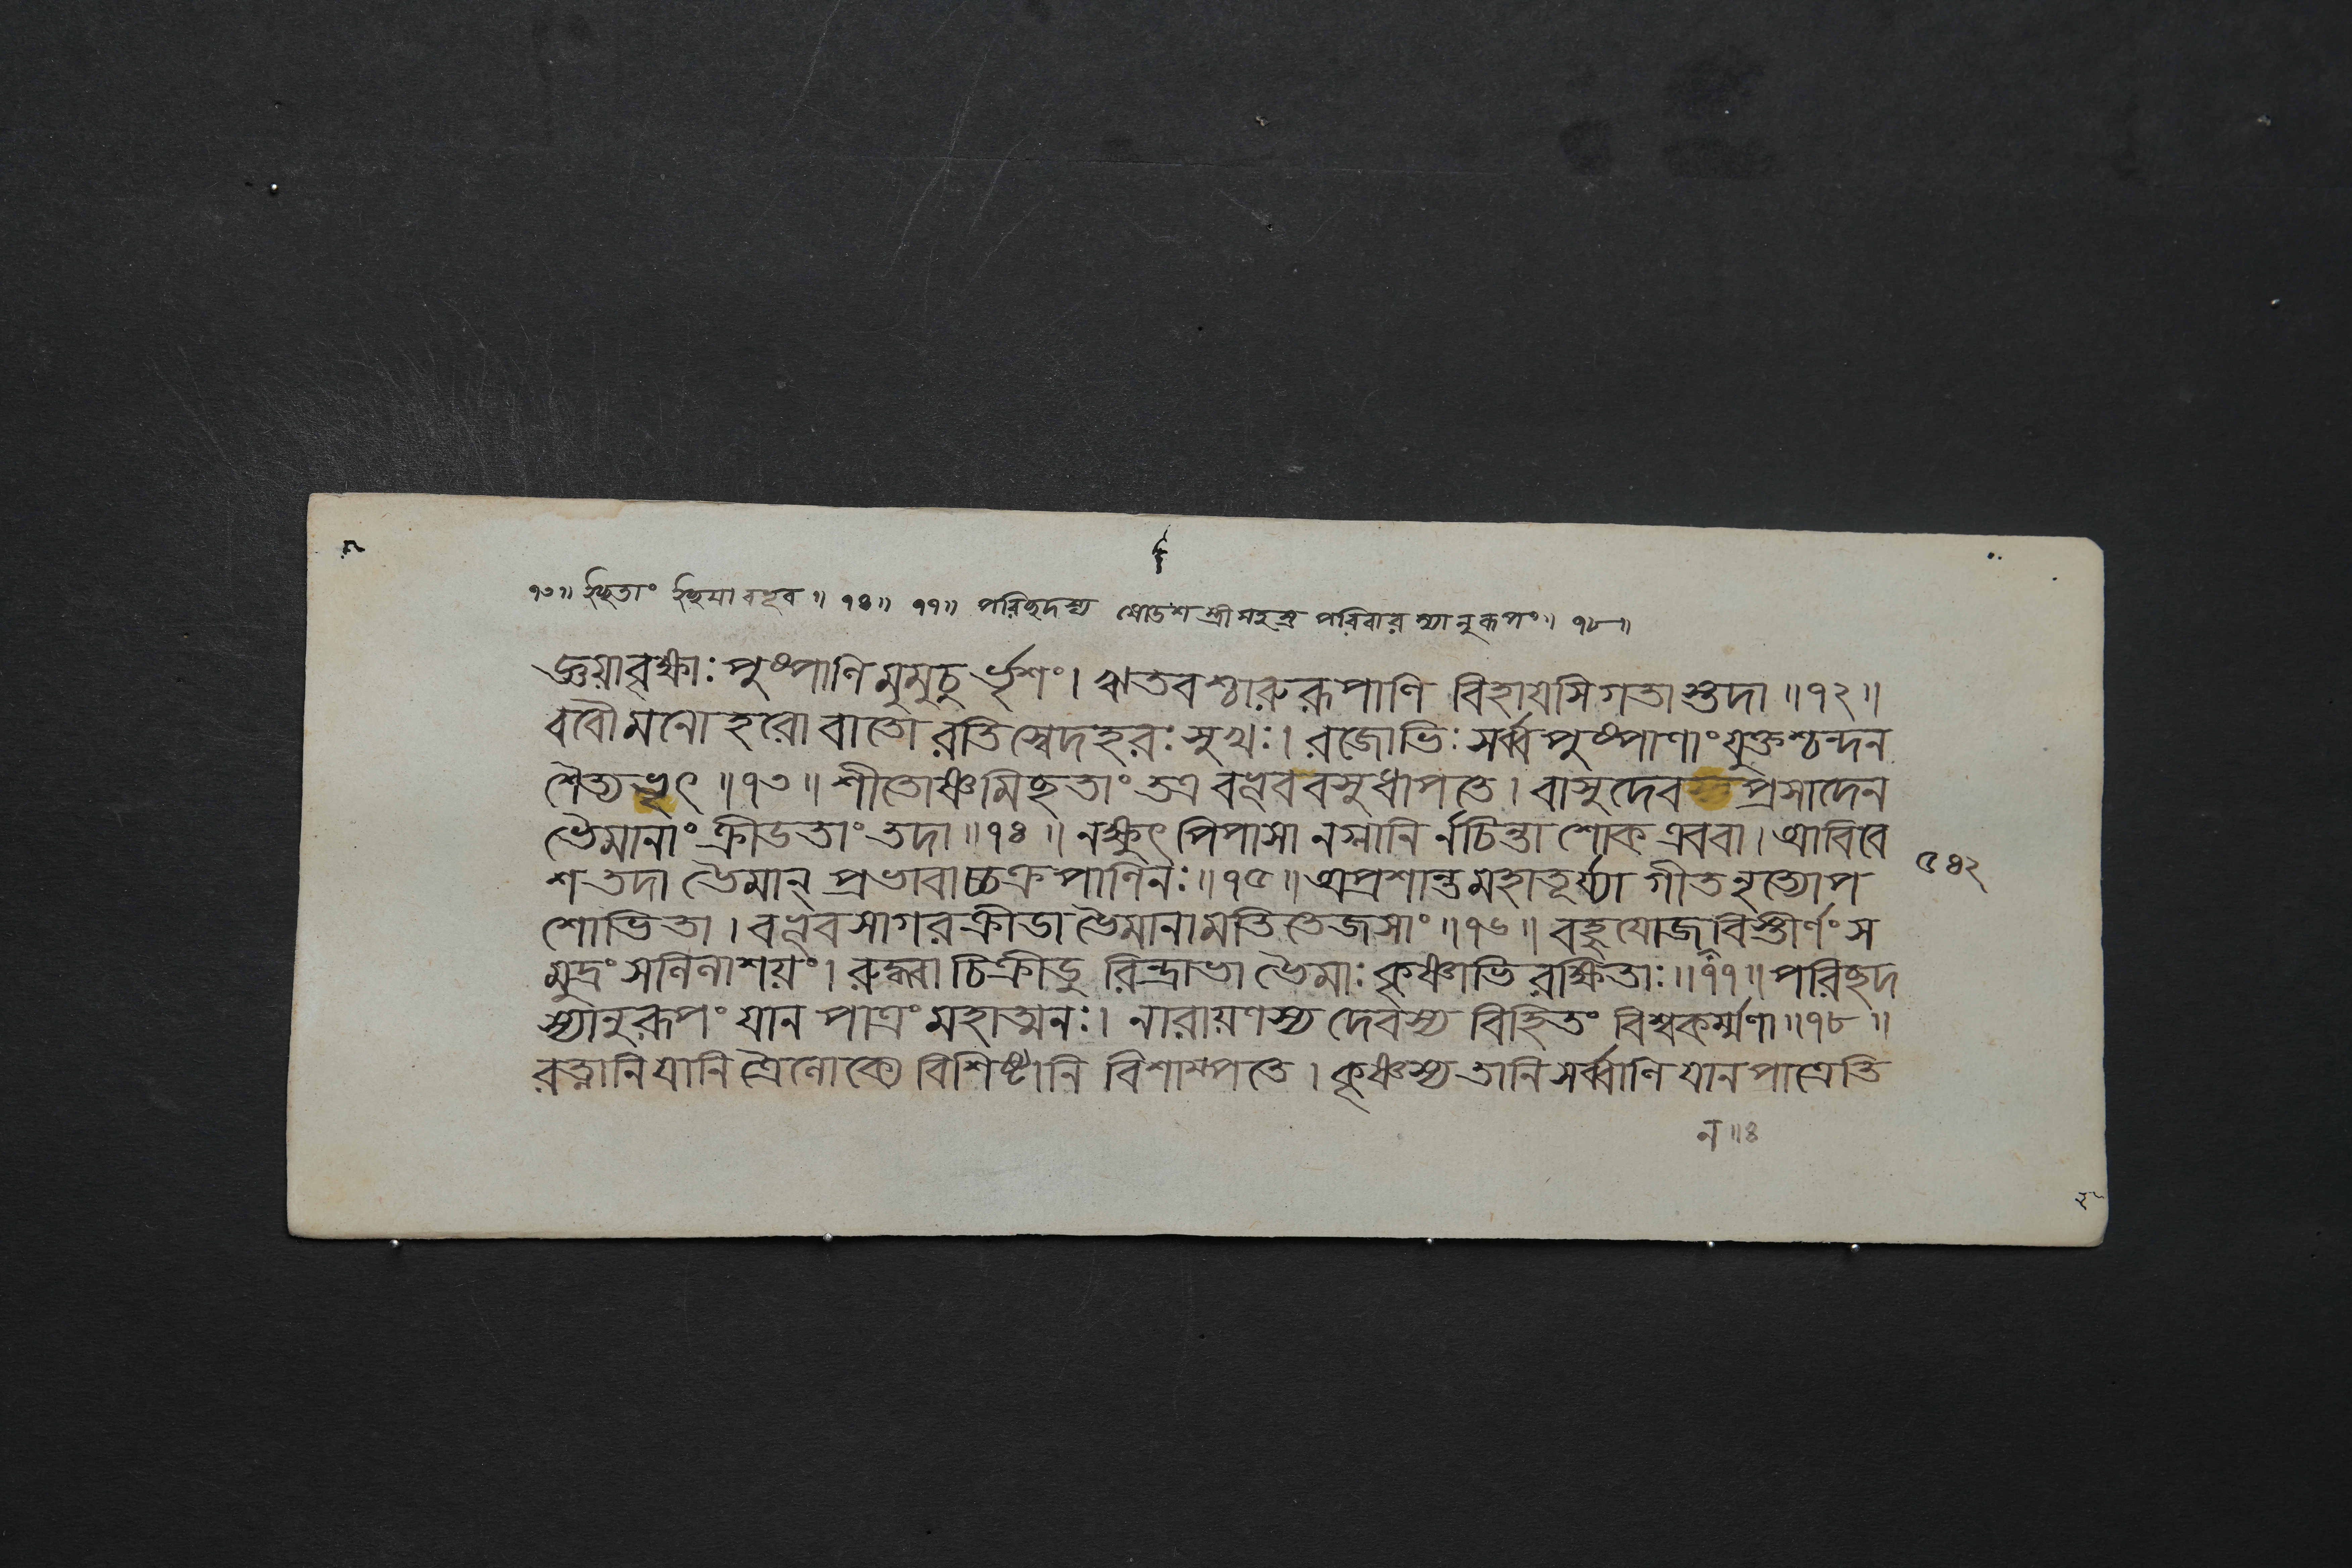 ১৩॥ ইচ্ছতাং ইচ্ছয়া বভূব॥ ১৪॥ ১৭॥ পরিচ্ছদস্য ষোডশস্ত্রীসহস্র পরিবারস্যানুরূপং॥ ১৮॥
জ্ঞয়াবৃক্ষাঃ পুষ্পাণি মুমুচুর্ভৃশং। ঋতবশ্চারুরূপাণি বিহাযসি গতাস্তদা॥১২॥
ববৌ মনোহরো বাতো রতিস্বেদহরঃ সুখঃ। রজোভিঃ সর্ব্বপুষ্পাণাং যুক্তশ্চন্দন
শৈত্যভৃৎ॥১৩॥ শীতোষ্ণমিচ্ছতাং তত্র বভূব বসুধাপতে। বাসুদেব প্রসাদেন
ভৈমানাং ক্রীডতাং তদা॥১৪॥ নক্ষুৎ পিপাসা নগ্লানির্নচিন্তা শোক এববা। আবিবে
শ তদা ভৈমান্ প্রভাবাচ্চক্রপাণিনঃ॥১৫॥ অপ্রশান্তমহাতূর্য্যা গীতনৃত্যোপ
৫৪২
শোভিতা। বভূব সাগরক্রীডা ভৈমানামতিতেজসাং॥১৬॥ বহুযোজনবিস্তীর্ণং স
মুদ্রং সলিলাশয়ং। রুদ্ধ্বা চিক্রীডুরিন্দ্রাভা ভৈমাঃ কৃষ্ণাভিরক্ষিতাঃ॥১৭॥ পরিচ্ছদ
স্যানুরূপং যানপাত্রং মহাত্মনঃ। নারায়ণস্য দেবস্য বিহিতং বিশ্বকর্ম্মণা॥১৮॥
রত্নানি যানি ত্রৈলোক্যে বিশিষ্টানি বিশাম্পতে। কৃষ্ণস্য তানি সর্ব্বাণি যানপাত্রেতি
ন॥৪